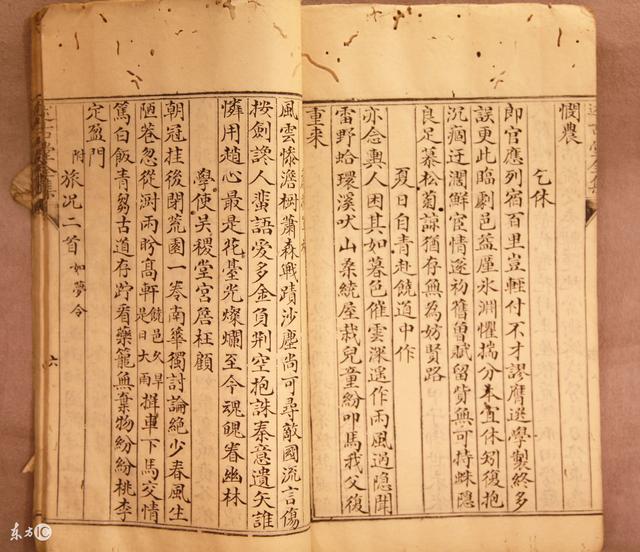 憫農
乞休
即官應列宿百里豈輕付不才謬膺選學製終多
誤更此臨劇邑益厪氷淵懼揣分本宜休矧復抱
沉痼迂濶鮮宦情遂初舊曾賦留貲無可持蛛隱
良足慕松菊諒猶存無為妨賢路
夏日自青赴饒道中作
亦念輿人困其如暮色催雲深遥作雨風過隠聞
雷野蛤環溪吠山桑繞屋栽兒童紛叩馬我父復
重来
風雲慘澹樹蕭森戰蹟沙塵尚可尋敵國流言傷
按劍讒人蜚語愛多金負荆空抱誅秦意遺矢誰
憐用趙心最是花臺光燦爛至今魂魄眷幽林
學使吴稷堂宮詹枉顧
朝冠挂後閉荒園一卷南華獨討論絶少春風生
陋巷忽從澍雨盻髙軒饒邑久旱是日大雨揖車下馬交情
篤白飯青芻古道存跧看藥籠無棄物紛紛桃李
定盈門
附旅况二首如夢令
六
东方IC